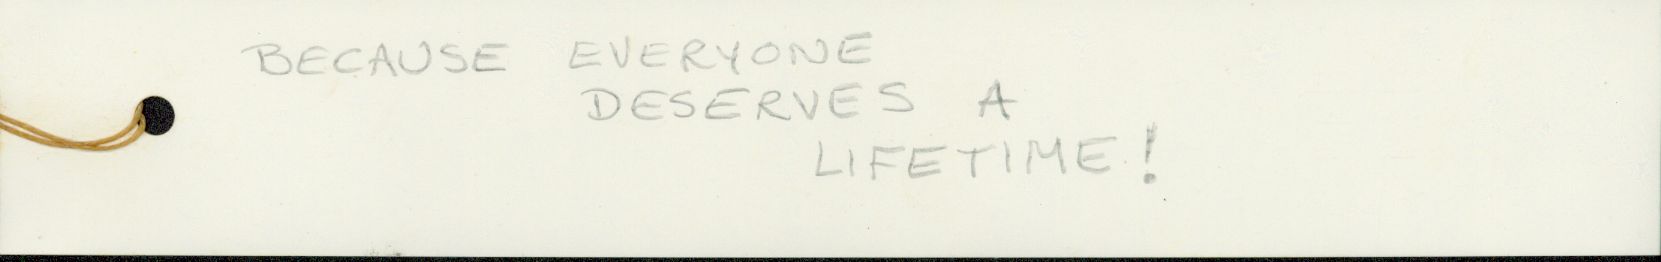 BECAUSE EVERYONE
DESERVES A
LIFETIME!